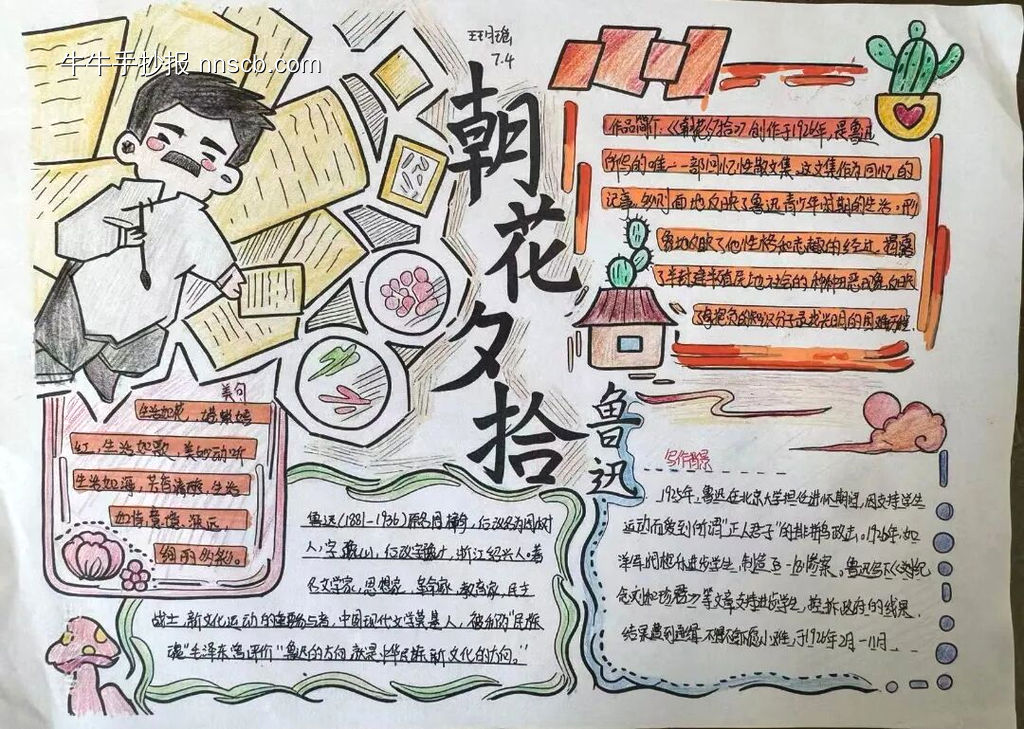 牛牛手抄报 nnscb.com
7.4
朝花夕拾
鲁迅
作品简介:《朝花夕拾》创作于1926年,是鲁迅
所写的唯一一部回忆性散文集,这文集作为回忆的
记事,多侧面地反映了鲁迅青少年时期的生活,形
象地反映了他性格和志趣的经过。揭露
了半封建半殖民地社会的种种丑恶现象,反映
了有抱负的知识分子寻求光明的困难历程.
美句
生活如花,姹紫嫣
红,生活如歌,美妙动听
生活如酒,芳香清醇,生活
如诗,意境
绚丽多彩。
鲁迅(1881-1936)原名周樟寿,后改名为周树
人,字豫山,后改字豫才,浙江绍兴人。著
名文学家,思想家,革命家,教育家,民主
战士,新文化运动的重要参与者,中国现代文学奠基人,被称为"民族
魂"毛泽东曾评价"鲁迅的方向就是中华民族新文化的方向。"
写作背景
1925年,鲁迅在北京大学担任讲师期间,因支持学生
运动而受到所谓"正人君子"的排挤攻击。1926年,如
学生,制造三一八惨案。鲁迅写下《纪
念刘和珍君》等文章支持进步学生,控拆政府的残暴
结果遭到通缉 于1926年2月-11月